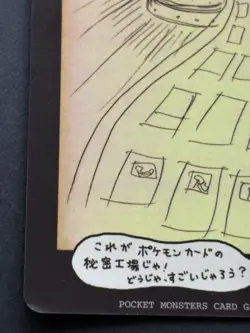 これが ポケモンカードの
秘密工場じゃ!
どうじゃ、すごいじゃろう?
POCKET MONSTERS CARD G